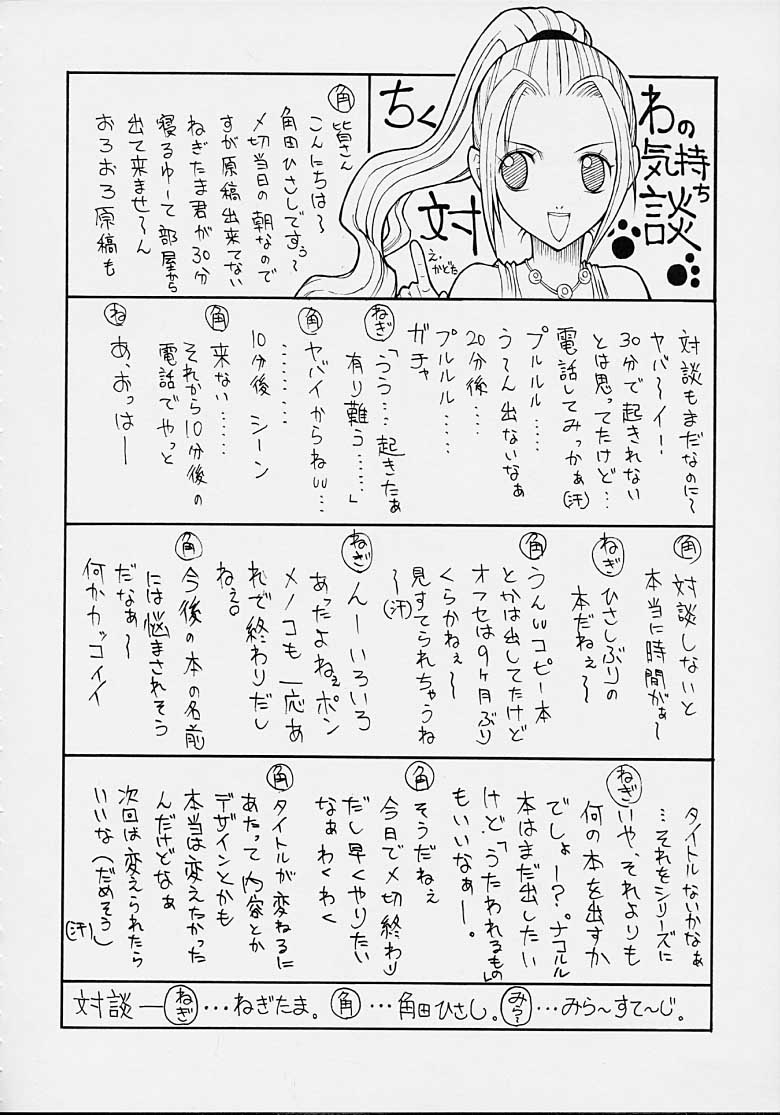 ちくわの気持ち
対談
え・かどた
角 皆さん
こんにちは〜
角田ひさしですぅ〜
〆切当日の朝なので
すが原稿出来てない
ねぎたま君が30分
寝るゆーて部屋から
出て来ませ〜ん
おろおろ原稿も
対談もまだなのに〜
ヤバ〜イ！
30分で起きれない
とは思ってたけど…
電話してみっかぁ(汗)
プルルル……
う〜ん出ないなぁ
20分後……
プルルル……
ガチャ
ねぎ「うう…起きたぁ
有り難う……」
角 ヤバイからねw…
………
10分後 シーン
角 来ない……
それから10分後の
電話でやっと
ね あ、おっはー
角 対談しないと
本当に時間がぁ〜
ねぎ ひさしぶりの
本だねぇ〜
角 うんwコピー本
とかは出してたけど
オフセは9ヶ月ぶり
くらかねぇ〜
見すてられちゃうね
〜(汗)
ねぎ んーいろいろ
あったよねぇポン
メノコも一応あ
れで終わりだし
ねぇ。
角 今後の本の名前
には悩まされそう
だなぁ〜
何かカッコイイ
タイトルないかなぁ
…それをシリーズに
ねぎ いや、それよりも
何の本を出すか
でしょー？。ナコルル
本はまだ出したい
けど「うたわれるもの」
もいいなぁー。
角 そうだねぇ
今日で〆切終わり
だし早くやりたい
なぁわくわく
角 タイトルが変わるに
あたって内容とか
デザインとかも
本当は変えたかった
んだけどなぁ
次回は変えられたら
いいな(だめそう)
(汗)
対談―ねぎ…ねぎたま。角…角田ひさし。みら〜…みら〜すて〜じ。